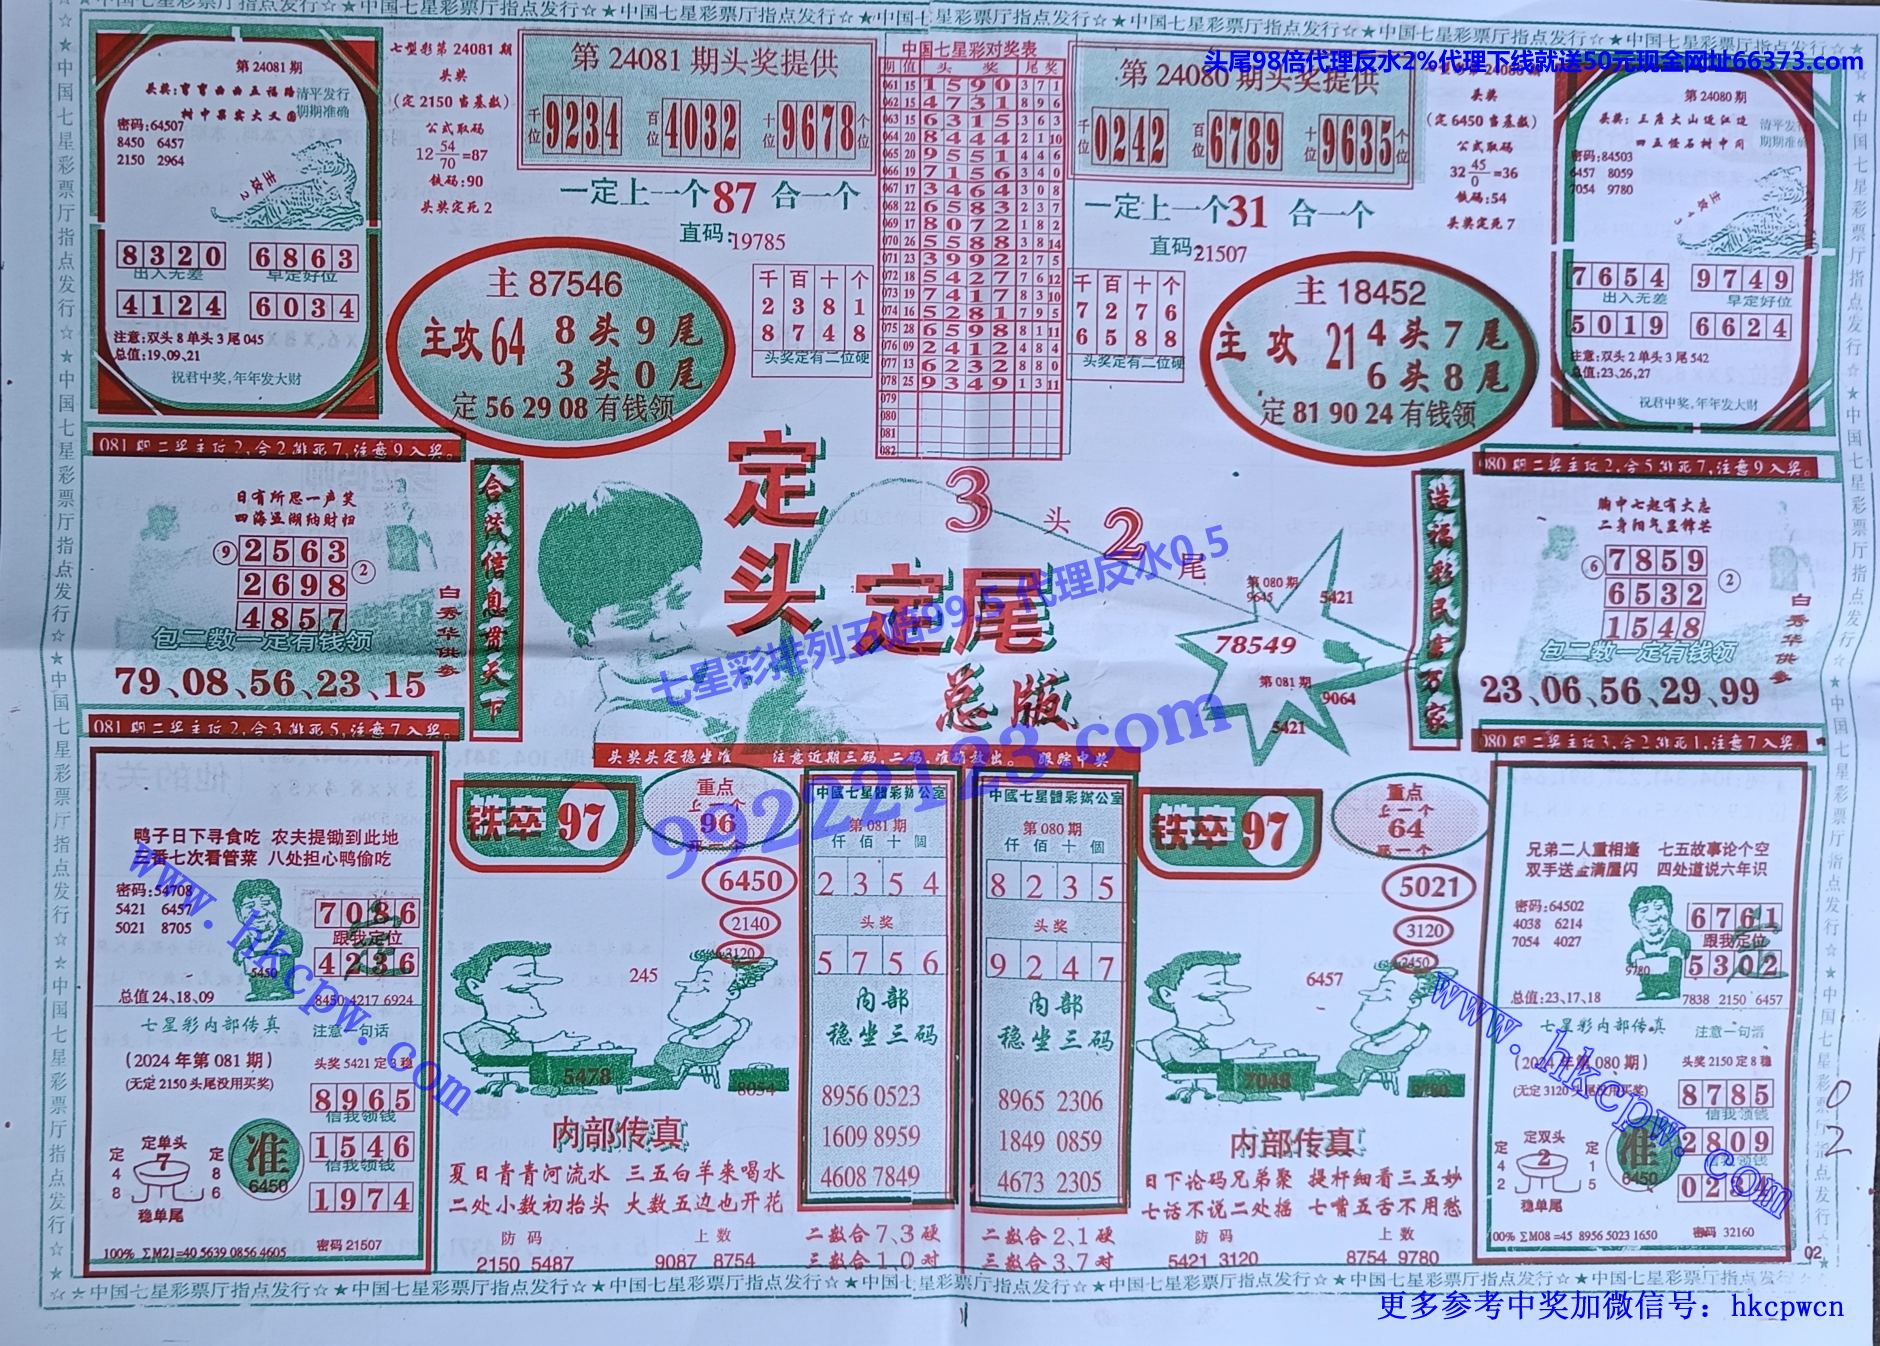 ☆★中国七星彩票厅指点发行☆★中国七星彩票厅指点发行☆★中国七星彩票厅指点发行☆★中国七星彩票厅指点发行
头尾98倍代理反水2%代理下线就送50元现金网址66373.com
第 24081 期
清平发行
期期准确
树中果实大又圆
密码:64507
8450 6457
2150 2964
主攻2
8320 6863
出入无差 早定好位
4124 6034
注意:双头 8 单头 3 尾 045
总值:19、09、21
祝君中奖,年年发大财
七星彩第 24081 期
头奖
(定 2150 当基数)
公式取码
12 54/70 =87
铁码:90
头奖定死 2
第 24081 期头奖提供
千位 9234 百位 4032 十位 9678 个位
一定上一个 87 合一个
直码:19785
主 87546
主攻 64 8 头 9 尾
3 头 0 尾
定 56 29 08 有钱领
千百十个
2381
8748
头奖定有二位硬
中国七星彩对奖表
期 值 头 奖 尾 奖
061 15 1590 3 7 1
062 15 4731 8 9 6
063 15 6315 3 6 3
064 20 8444 2 1 10
065 20 9551 4 4 6
066 19 7156 3 4 0
067 17 3464 3 0 8
068 22 6583 2 3 7
069 17 8072 1 8 2
070 26 5588 3 8 14
071 23 3992 2 7 5
072 18 5427 7 6 12
073 19 7417 8 3 10
074 16 5281 7 9 5
075 28 6598 8 1 11
076 09 2412 4 8 4
077 13 6232 8 8 0
078 25 9349 1 3 11
079
080
081
082
第 24080 期头奖提供
千位 0242 百位 6789 十位 9635 个位
一定上一个 31 合一个
直码:21507
千百十个
7276
6588
头奖定有二位硬
主 18452
主攻 21 4 头 7 尾
6 头 8 尾
定 81 90 24 有钱领
头奖
(定 6450 当基数)
公式取码
32 45/0 =36
铁码:54
头奖定死 7
第 24080 期
头奖:三座大山近江边
四五怪石树中间
清平发行
期期准确
密码:84503
6457 8059
7054 9780
7654 9749
出入无差 早定好位
5019 6624
注意:双头 2 单头 3 尾 542
总值:23、26、27
祝君中奖,年年发大财
081 期二奖主位 2,合 2 排死 7,注意 9 入奖。
日有所思一声笑
四海盈湖纳财归
⑨ 2563
2698 ②
4857
包二数一定有钱领
白秀华供参
79、08、56、23、15
合茂信息贯天下
定头
定尾
总版
3 头 2 尾
第 080 期
9645 5421
78549
第 081 期
9064
5421
造福彩民富万家
080 期二奖主位 2,合 5 排死 7,注意 9 入奖。
胸中七起有大志
二身阳气显锋芒
⑥ 7859
6532 ②
1548
包二数一定有钱领
白秀华供参
23、06、56、29、99
七星彩排列五赔99.5 代理反水0.5
99222123.com
头奖头定稳坐准 注意近期三码,二码,准确放出。 跟踪中奖
081 期二奖主位 2,合 3 排死 5,注意 7 入奖。
鸭子日下寻食吃 农夫提锄到此地
三番七次看管菜 八处担心鸭偷吃
密码:54708
5421 6457
5021 8705
5450
7086
跟我定位
4236
总值 24、18、09
8450 4217 6924
七星彩内部传真
注意一句话
(2024 年第 081 期)
头奖 5421 定 3 稳
(无定 2150 头尾没用买奖)
8965
信我领钱
1546
信我领钱
1974
定单头
7
定 4 8
定 8 6
稳单尾
准
6450
100% ΣM21=40 5639 0856 4605
密码 21507
www.hkcpw.com
铁卒 97
重点
上一个
96
死一个
6450
2140
3120
245
5478
8054
内部传真
夏日青青河流水 三五白羊来喝水
二处小数初抬头 大数五边也开花
防码 上数
2150 5487 9087 8754
中國七星體彩辦公室
第 081 期
仟佰十個
2354
头奖
5756
内部
稳坐三码
8956 0523
1609 8959
4608 7849
二数合 7、3 硬
三数合 1、0 对
中國七星體彩辦公室
第 080 期
仟佰十個
8235
头奖
9247
内部
稳坐三码
8965 2306
1849 0859
4673 2305
二数合 2、1 硬
三数合 3、7 对
铁卒 97
重点
上一个
64
死一个
5021
3120
2450
6457
7048
9780
内部传真
日下论码兄弟聚 提杆细看三五妙
七话不说二处摇 七嘴五舌不用愁
防码 上数
5421 3120 8754 9780
080 期二奖主位 3,合 2 排死 1,注意 7 入奖。
兄弟二人重相逢 七五故事论个空
双手送孟满屋闪 四处道说六年识
密码:64502
4038 6214
7054 4027
9780
6761
跟我定位
5302
总值:23、17、18
7838 2150 6457
七星彩内部传真
注意一句话
(2024 年第 080 期)
头奖 2150 定 8 稳
(无定 3120 头尾没用买奖)
8785
信我领钱
2809
信我领钱
定双头
2
定 4 2
定 1 5
稳单尾
准
6450
00% ΣM08 =45 8956 5023 1650
密码 32160
www.hkcpw.com
0
2
02
☆★中国七星彩票厅指点发行☆★中国七星彩票厅指点发行☆★中国七星彩票厅指点发行☆★中国七星彩票厅指点发行
更多参考中奖加微信号：hkcpwcn